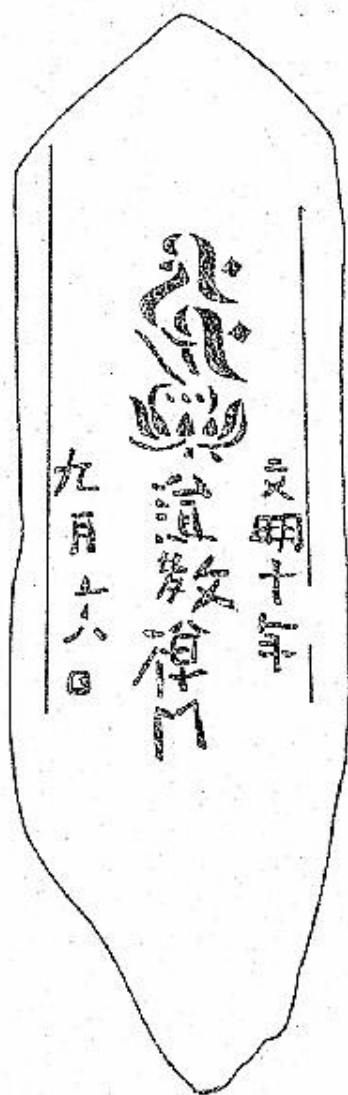 文明十年
道教禅門
九月十八日